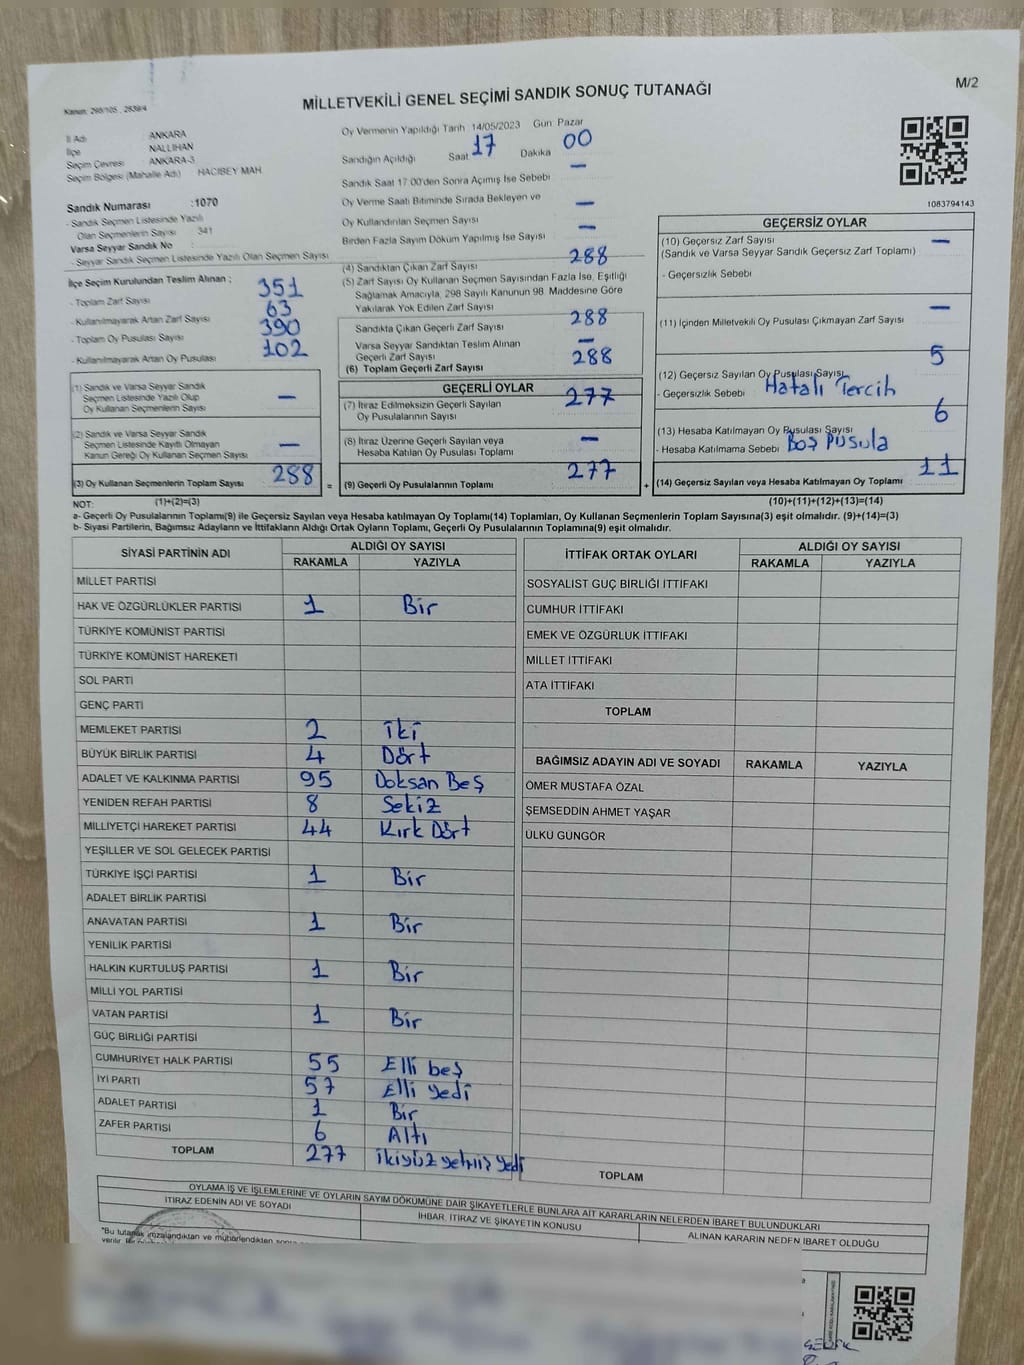 M/2
Kanun: 298/105 , 2839/4
MİLLETVEKİLİ GENEL SEÇİMİ SANDIK SONUÇ TUTANAĞI
İl Adı : ANKARA
İlçe : NALLIHAN
Seçim Çevresi : ANKARA-3
Seçim Bölgesi (Mahalle Adı) : HACIBEY MAH.
Sandık Numarası :1070
- Sandık Seçmen Listesinde Yazılı
Olan Seçmenlerin Sayısı : 341
Varsa Seyyar Sandık No :
- Seyyar Sandık Seçmen Listesinde Yazılı Olan Seçmen Sayısı
İlçe Seçim Kurulundan Teslim Alınan ;
- Toplam Zarf Sayısı 351
- Kullanılmayarak Artan Zarf Sayısı 63
- Toplam Oy Pusulası Sayısı 390
- Kullanılmayarak Artan Oy Pusulası 102
(1) Sandık ve Varsa Seyyar Sandık
Seçmen Listesinde Yazılı Olup
Oy Kullanan Seçmenlerin Sayısı –
(2) Sandık ve Varsa Seyyar Sandık
Seçmen Listesinde Kayıtlı Olmayan
Kanun Gereği Oy Kullanan Seçmen Sayısı –
(3) Oy Kullanan Seçmenlerin Toplam Sayısı 288
(1)+(2)=(3)
Oy Vermenin Yapıldığı Tarih 14/05/2023 Gün: Pazar
Sandığın Açıldığı Saat 17 Dakika 00
Sandık Saat 17.00'den Sonra Açılmış İse Sebebi –
Oy Verme Saati Bitiminde Sırada Bekleyen ve
Oy Kullandırılan Seçmen Sayısı –
Birden Fazla Sayım Döküm Yapılmış İse Sayısı –
(4) Sandıktan Çıkan Zarf Sayısı 288
(5) Zarf Sayısı Oy Kullanan Seçmen Sayısından Fazla İse, Eşitliği
Sağlamak Amacıyla, 298 Sayılı Kanunun 98. Maddesine Göre
Yakılarak Yok Edilen Zarf Sayısı
Sandıkta Çıkan Geçerli Zarf Sayısı 288
Varsa Seyyar Sandıktan Teslim Alınan
Geçerli Zarf Sayısı –
(6) Toplam Geçerli Zarf Sayısı 288
GEÇERLİ OYLAR
(7) İtiraz Edilmeksizin Geçerli Sayılan
Oy Pusulalarının Sayısı 277
(8) İtiraz Üzerine Geçerli Sayılan veya
Hesaba Katılan Oy Pusulası Toplamı –
= (9) Geçerli Oy Pusulalarının Toplamı 277 +
1083794143
GEÇERSİZ OYLAR
(10) Geçersiz Zarf Sayısı –
(Sandık ve Varsa Seyyar Sandık Geçersiz Zarf Toplamı)
- Geçersizlik Sebebi :
(11) İçinden Milletvekili Oy Pusulası Çıkmayan Zarf Sayısı –
(12) Geçersiz Sayılan Oy Pusulası Sayısı 5
- Geçersizlik Sebebi : Hatalı Tercih
(13) Hesaba Katılmayan Oy Pusulası Sayısı 6
- Hesaba Katılmama Sebebi : Boş Pusula
(14) Geçersiz Sayılan veya Hesaba Katılmayan Oy Toplamı 11
(10)+(11)+(12)+(13)=(14)
NOT:
a- Geçerli Oy Pusulalarının Toplamı(9) ile Geçersiz Sayılan veya Hesaba katılmayan Oy Toplamı(14) Toplamları, Oy Kullanan Seçmenlerin Toplam Sayısına(3) eşit olmalıdır. (9)+(14)=(3)
b- Siyasi Partilerin, Bağımsız Adayların ve İttifakların Aldığı Ortak Oyların Toplamı, Geçerli Oy Pusulalarının Toplamına(9) eşit olmalıdır.
SİYASİ PARTİNİN ADI ALDIĞI OY SAYISI
RAKAMLA YAZIYLA
MİLLET PARTİSİ
HAK VE ÖZGÜRLÜKLER PARTİSİ 1 Bir
TÜRKİYE KOMÜNİST PARTİSİ
TÜRKİYE KOMÜNİST HAREKETİ
SOL PARTİ
GENÇ PARTİ
MEMLEKET PARTİSİ 2 İki
BÜYÜK BİRLİK PARTİSİ 4 Dört
ADALET VE KALKINMA PARTİSİ 95 Doksan Beş
YENİDEN REFAH PARTİSİ 8 Sekiz
MİLLİYETÇİ HAREKET PARTİSİ 44 Kırk Dört
YEŞİLLER VE SOL GELECEK PARTİSİ
TÜRKİYE İŞÇİ PARTİSİ 1 Bir
ADALET BİRLİK PARTİSİ
ANAVATAN PARTİSİ 1 Bir
YENİLİK PARTİSİ
HALKIN KURTULUŞ PARTİSİ 1 Bir
MİLLİ YOL PARTİSİ
VATAN PARTİSİ 1 Bir
GÜÇ BİRLİĞİ PARTİSİ
CUMHURİYET HALK PARTİSİ 55 Elli beş
İYİ PARTİ 57 Elli yedi
ADALET PARTİSİ 1 Bir
ZAFER PARTİSİ 6 Altı
TOPLAM 277 ikiyüz yetmiş yedi
İTTİFAK ORTAK OYLARI ALDIĞI OY SAYISI
RAKAMLA YAZIYLA
SOSYALİST GÜÇ BİRLİĞİ İTTİFAKI
CUMHUR İTTİFAKI
EMEK VE ÖZGÜRLÜK İTTİFAKI
MİLLET İTTİFAKI
ATA İTTİFAKI
TOPLAM
BAĞIMSIZ ADAYIN ADI VE SOYADI RAKAMLA YAZIYLA
ÖMER MUSTAFA ÖZAL
ŞEMSEDDİN AHMET YAŞAR
ÜLKÜ GÜNGÖR
TOPLAM
OYLAMA İŞ VE İŞLEMLERİNE VE OYLARIN SAYIM DÖKÜMÜNE DAİR ŞİKAYETLERLE BUNLARA AİT KARARLARIN NELERDEN İBARET BULUNDUKLARI
İTİRAZ EDENİN ADI VE SOYADI İHBAR, İTİRAZ VE ŞİKAYETİN KONUSU ALINAN KARARIN NEDEN İBARET OLDUĞU
"Bu tutanak imzalandıktan ve mühürlendikten sonra